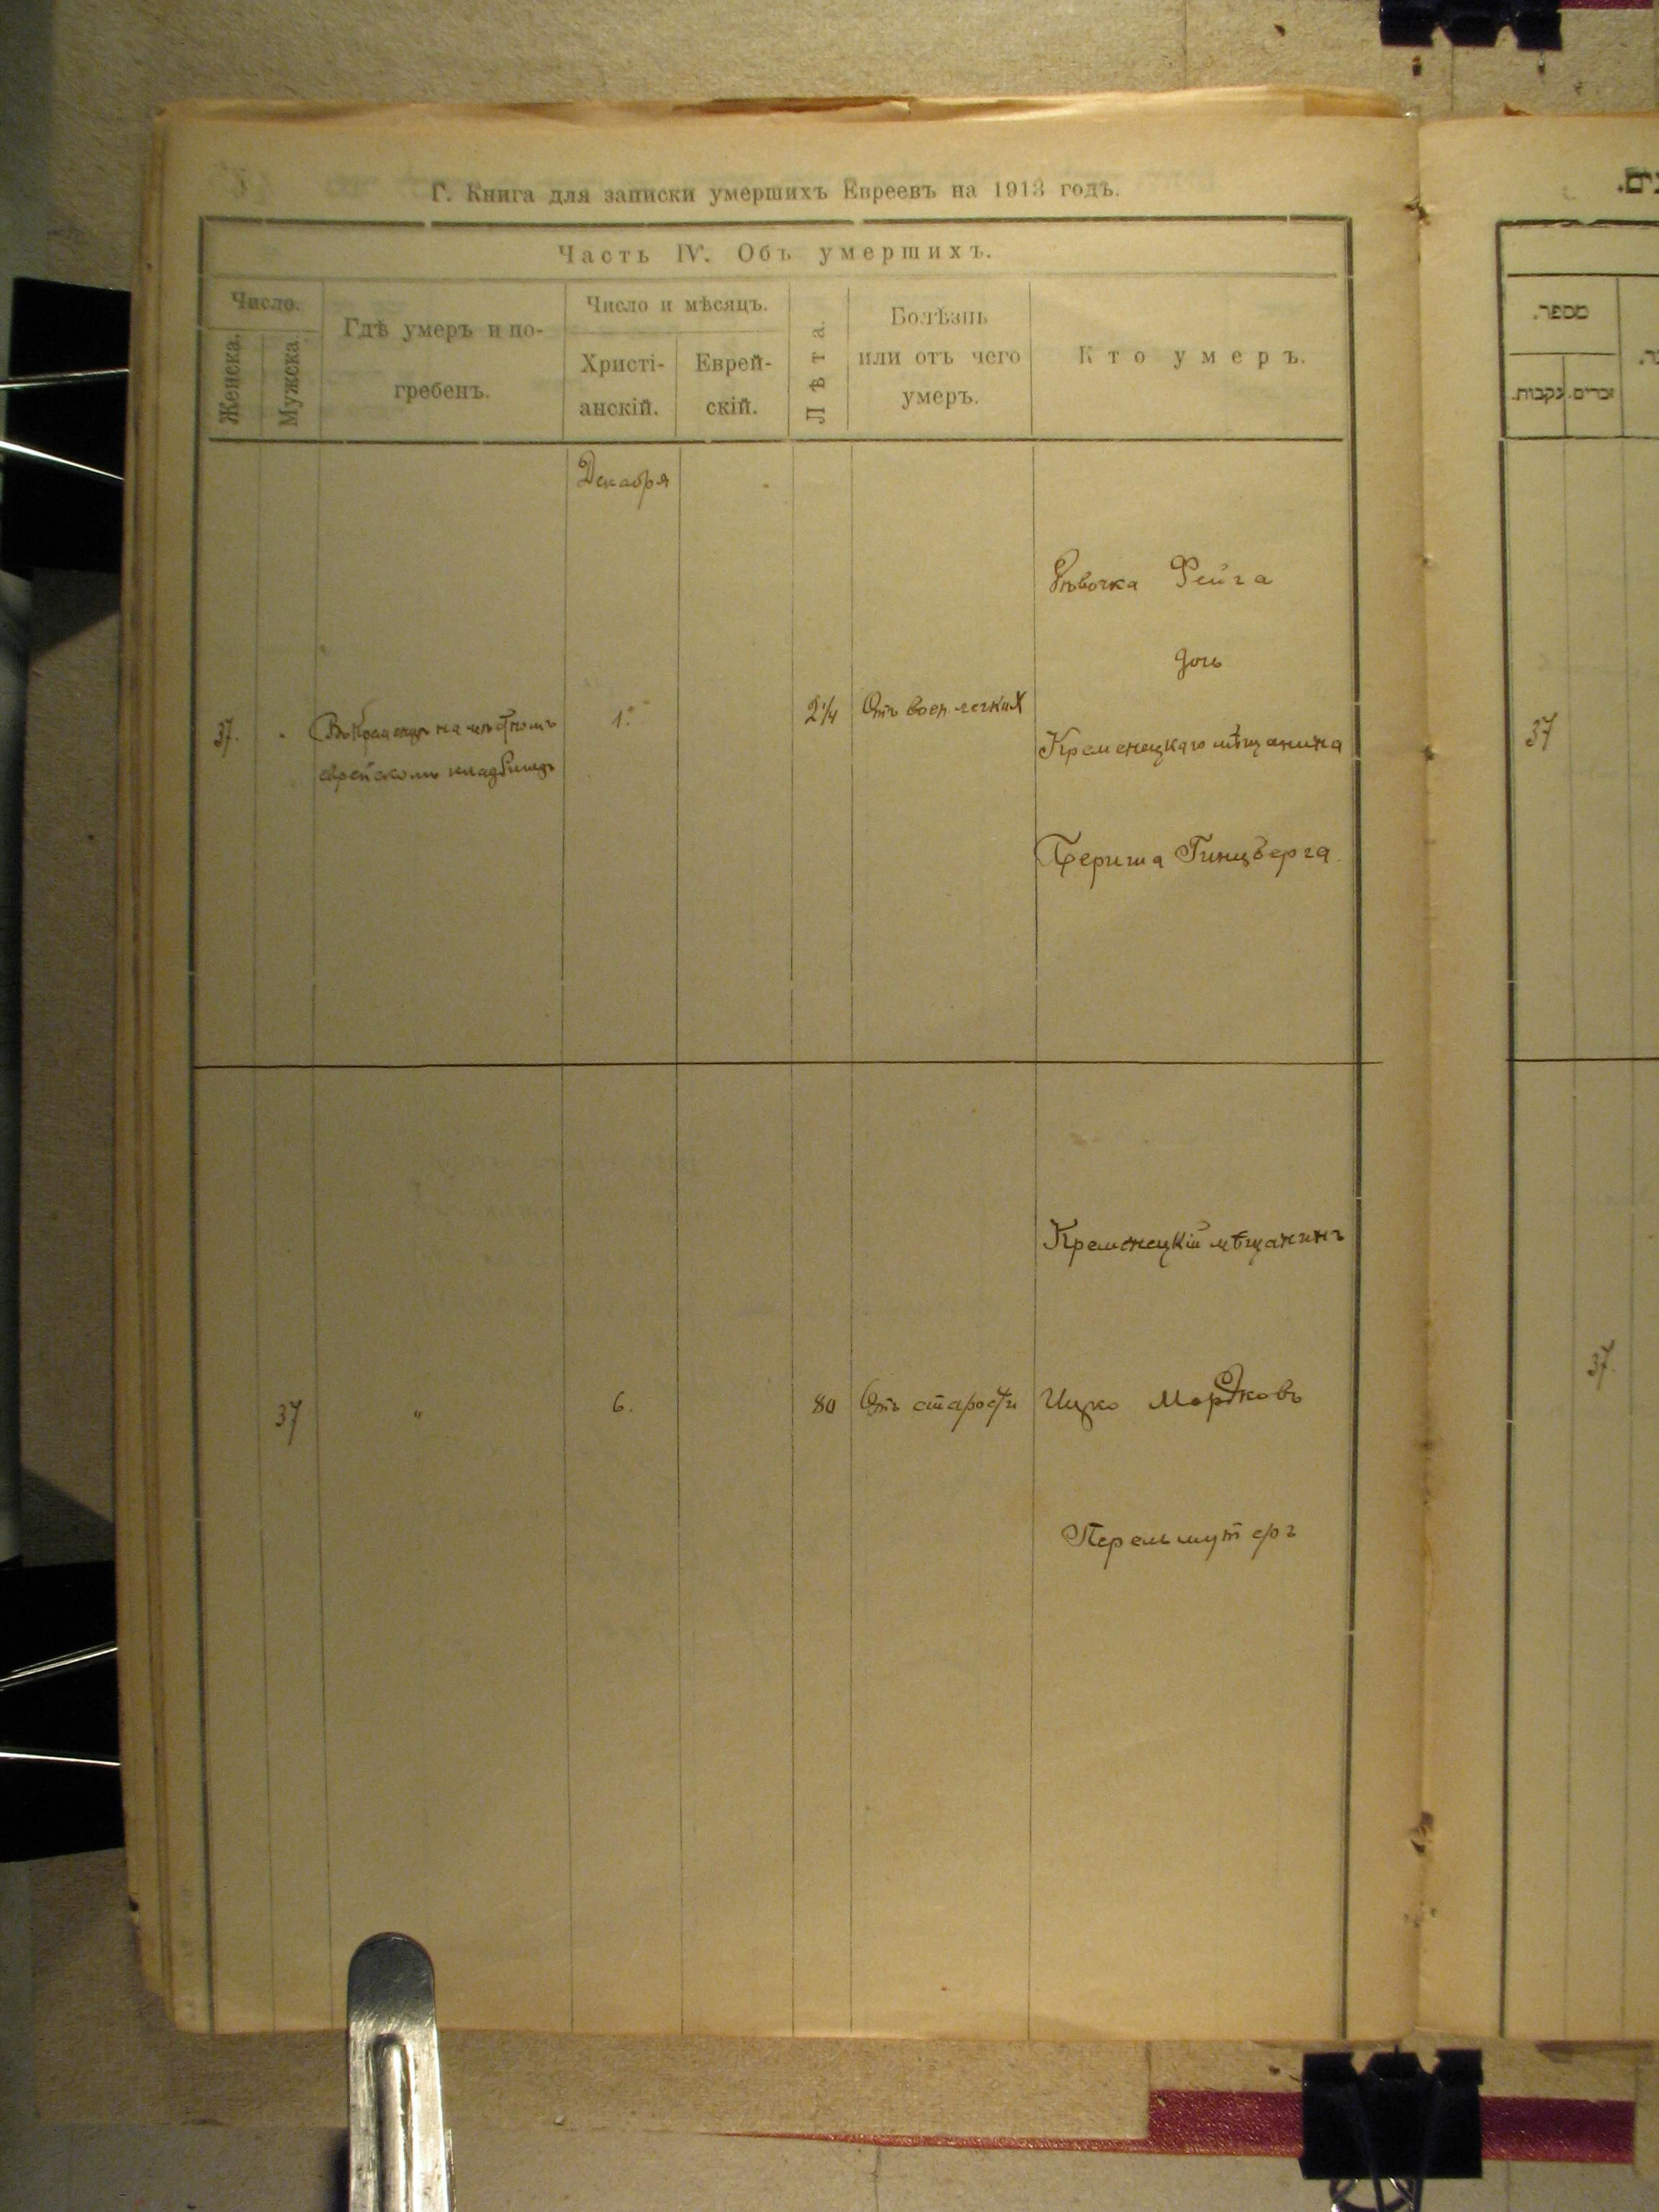 Г. Книга для записки умершихъ Евреевъ на 1913 годъ.
Часть IV. Объ умершихъ.
Число.
Женска.
Мужска.
Гдѣ умеръ и по-
гребенъ.
Число и мѣсяцъ.
Христі-
анскій.
Еврей-
скій.
Лѣта.
Болѣзнь
или отъ чего
умеръ.
Кто умеръ.
Декабря
Дѣвочка Фейга
дочь
37.
Въ Кременцѣ на мѣстномъ
еврейскомъ кладбищѣ
1.
2 1/4
Отъ восп. легкихъ
Кременецкаго мѣщанина
Гинцберга
Кременецкій мѣщанинъ
37
"
6.
80
Отъ старости
Ицко Мордковъ
Перельмутеръ
מספר.
זכרים.
נקבות.
37
37.